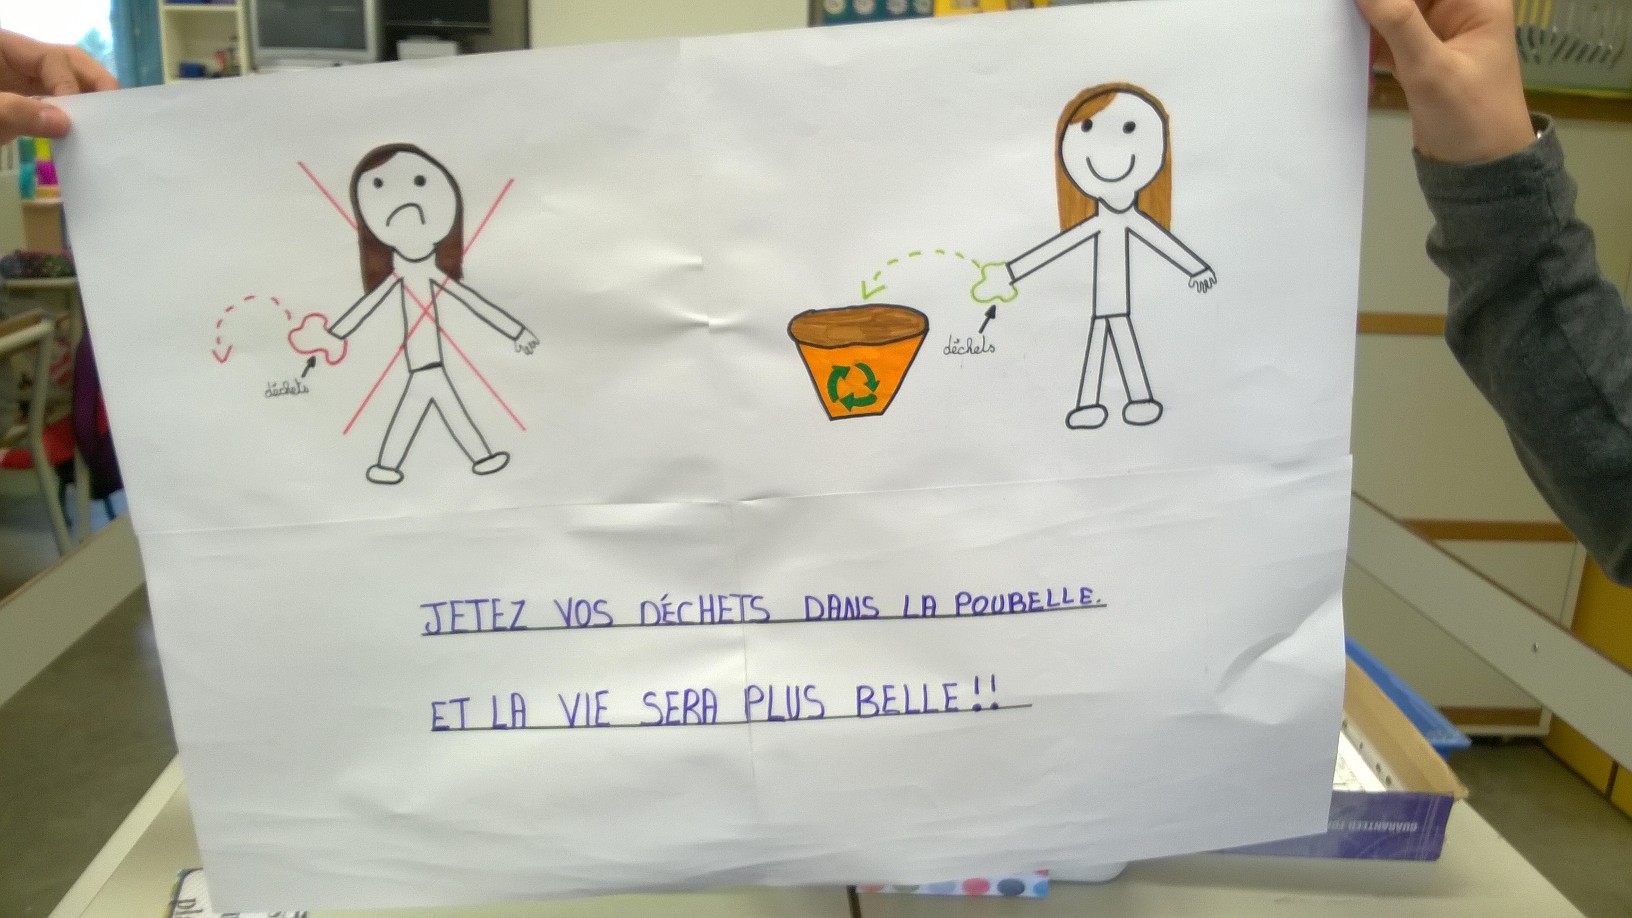 déchets
déchets
JETEZ VOS DÉCHETS DANS LA POUBELLE.
ET LA VIE SERA PLUS BELLE!!
GUARANTEED